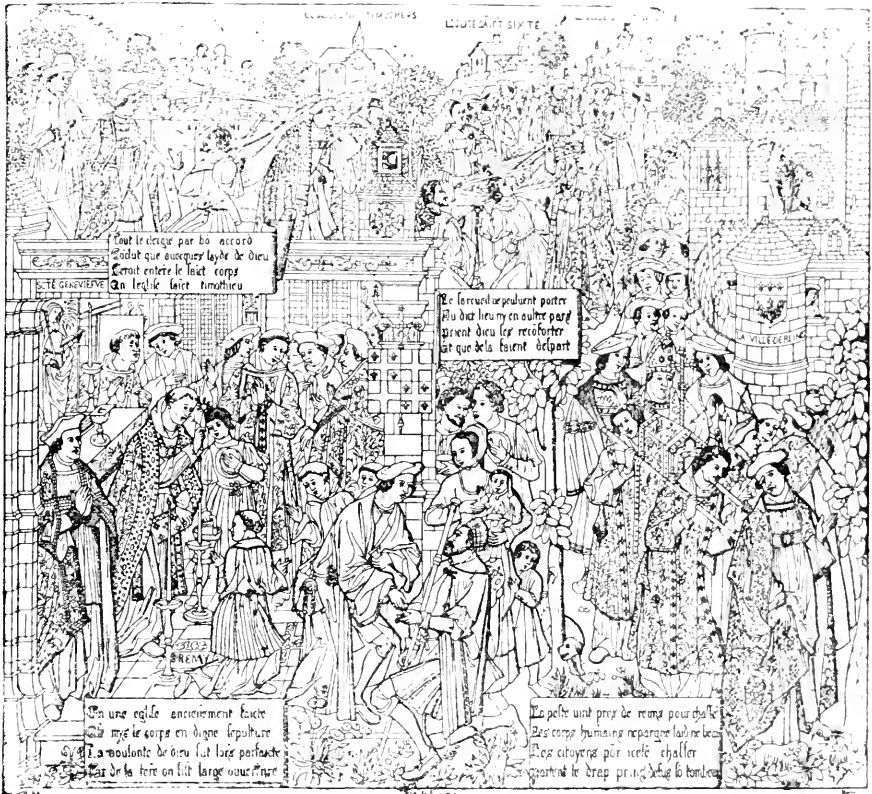 TIMOTHEVS
SIXTE
Tout le clergie par bo accord
Coclut que auecques layde de dieu
Seroit entere le saict corps
En leglise saict timothieu
STE GENEVIEFVE
Le sarcueil ne peulent porter
Au dict lieu ny en aultre part
prient dieu les recoforter
Et que de la facent despart
LA VILLE DE REINS
S REMY
En une eglise anciennement faicte
mys le corps en digne sepulture
La voulonte de dieu fut lors parfaicte
Car de la tere on fist large ouverture
La peste uint pres de reims pour
Des corps humains nepargne laid ne beau
Les citoyens por icele chasser
portent le drap pris desus so tombeau